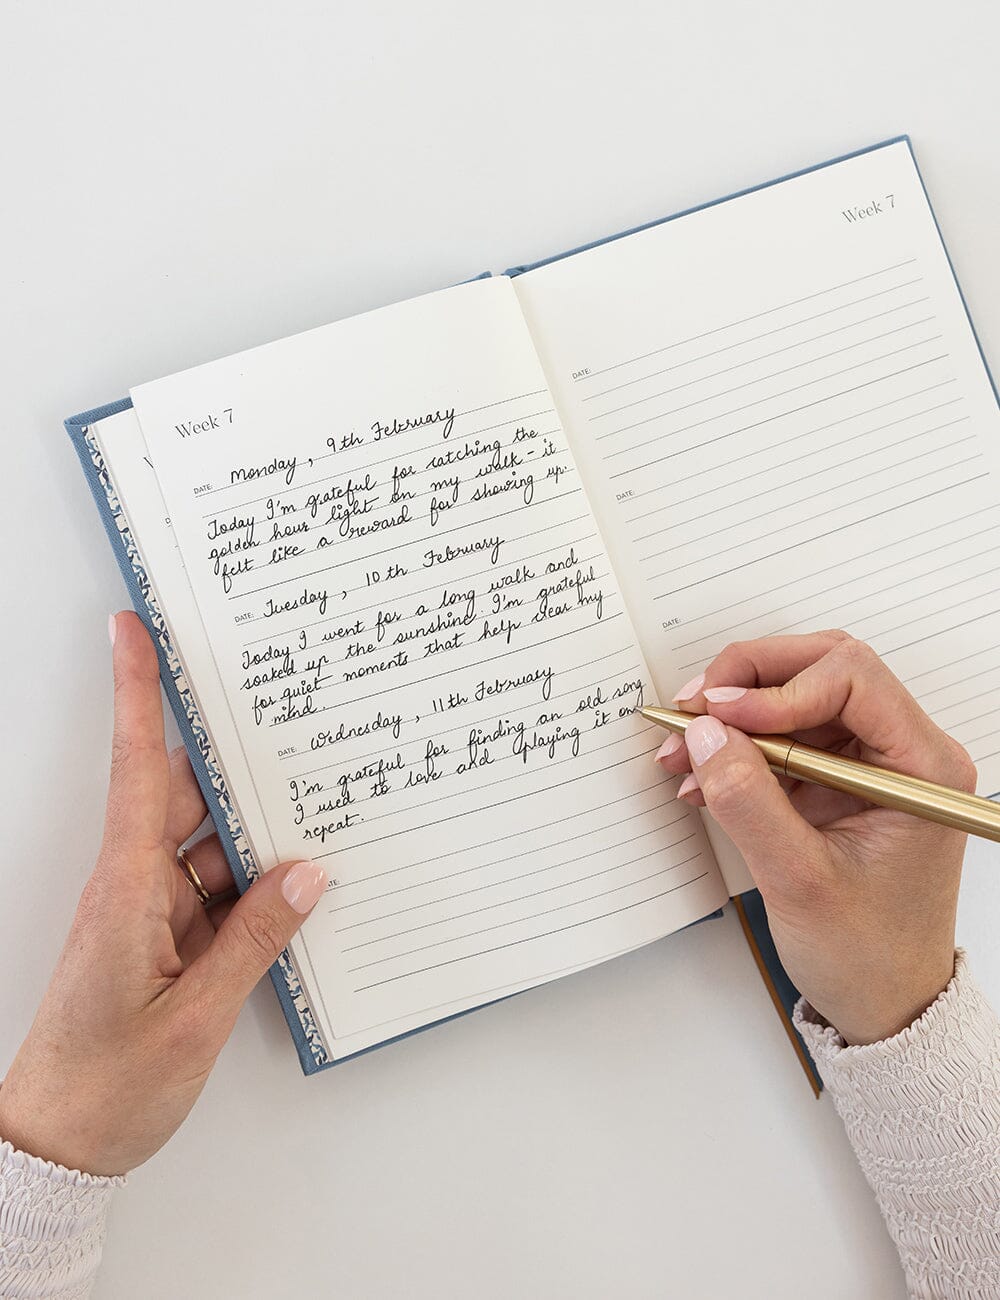 Week 7
DATE: Monday, 9th February
Today I'm grateful for catching the
golden hour light on my walk - it
felt like a reward for showing up.
DATE: Tuesday, 10th February
Today I went for a long walk and
soaked up the sunshine. I'm grateful
for quiet moments that help clear my
mind.
DATE: Wednesday, 11th February
I'm grateful for finding an old song
I used to love and playing it on
repeat.
TE:
Week 7
DATE:
DATE:
DATE: